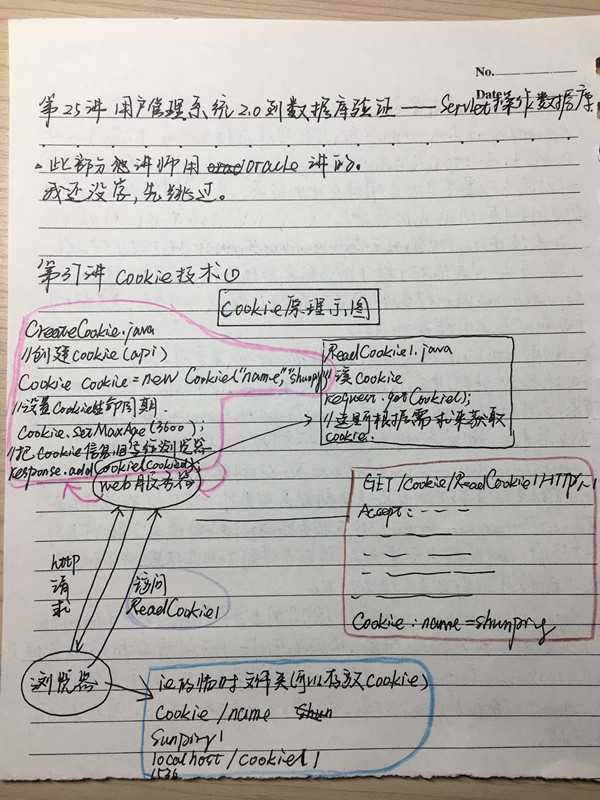 No.
Date
第25讲 用户管理系统2.0到数据库验证——Servlet操作数据库
此部分想讲师用oracle讲的.
我还没学,先跳过。
第37讲 Cookie技术①
Cookie原理示图
CreateCookie.java
//创建cookie(api)
Cookie cookie=new Cookie("name","shunping")
//设置Cookie生命周期
Cookie.setMaxAge(3600);
//把Cookie信息回写给浏览器
response.addCookie(cookie);
ReadCookie1.java
//读Cookie
request.getCookie();
//这里再根据需求来获取
cookie.
web服务器
GET/Cookie/ReadCookie1 HTTP/1.1
Accept:---
Cookie:name=shunping
http
请
求
访问
ReadCookie1
浏览器
ie的临时文件夹(可以存取Cookie)
Cookie/name
Sunping1
localhost/cookie11
1536